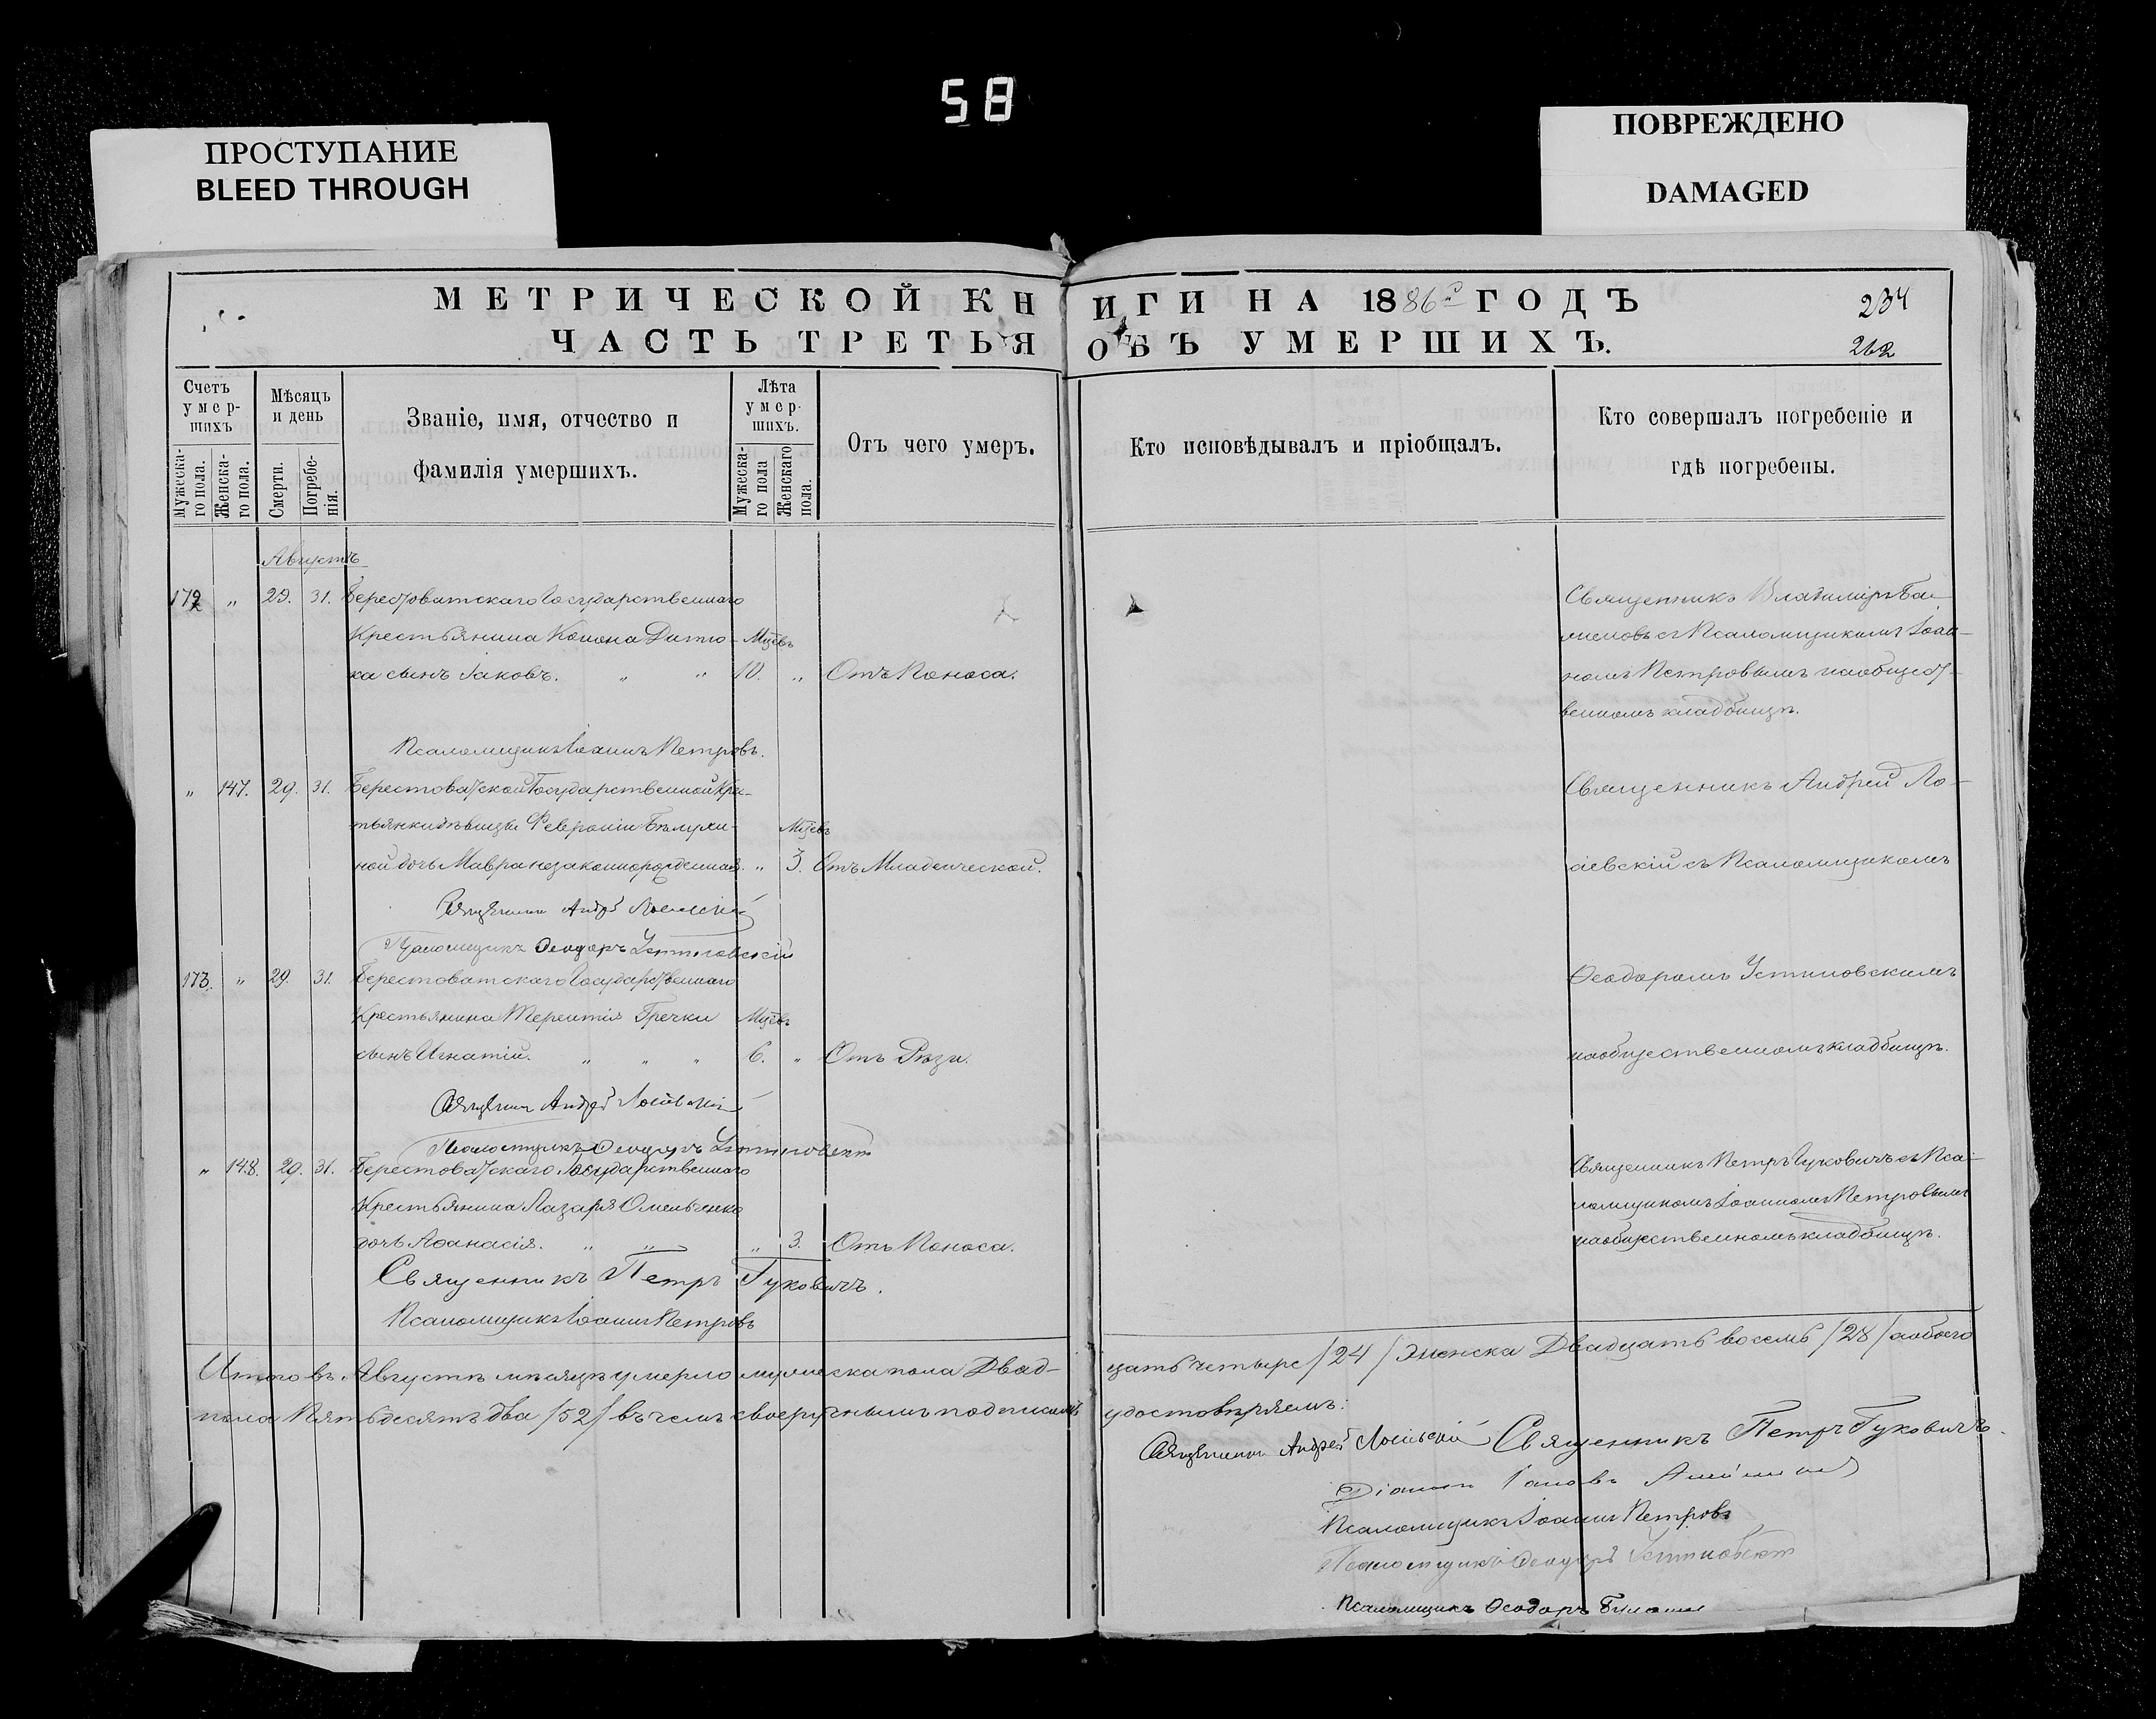 58
ПРОСТУПАНИЕ
BLEED THROUGH
ПОВРЕЖДЕНО
DAMAGED
МЕТРИЧЕСКОЙ КНИГИ НА 1886й ГОДЪ
234
ЧАСТЬ ТРЕТЬЯ ОБЪ УМЕРШИХЪ.
262
Счетъ умер-шихъ
Мужеска-го пола.
Женска-го пола.
Мѣсяцъ и день
Смерти.
Погребе-нія.
Званіе, имя, отчество и
фамилія умершихъ.
Лѣта умер-шихъ.
Мужеска-го пола
Женскаго пола.
Отъ чего умеръ.
Кто исповѣдывалъ и пріобщалъ.
Кто совершалъ погребеніе и
гдѣ погребены.
Августъ
172 " 29. 31. Берестоватскаго Государственнаго
Крестьянина Конона Дитю- Мцевъ
ка сынъ Іаковъ. " " 10. " Отъ Поноса.
Священникъ Владиміръ
съ Псаломщикомъ Іоан-
номъ Петровымъ на общест-
венномъ кладбищѣ.
Псаломщикъ Іоаннъ Петровъ.
" 147. 29. 31. Берестоватской Государственной Крес-
тьянки дѣвицы Февроніи Мцевъ
ной дочь Мавра незаконнорожденная. " 3. Отъ Младенческой.
Священникъ Андрей
Псаломщикъ Ѳеодоръ Устиновскій
Священникъ Андрей Ло-
съ Псаломщикомъ
Ѳеодоромъ Устиновскимъ
на общественномъ кладбищѣ.
173. " 29. 31. Берестоватскаго Государственнаго
Крестьянина Терентія Гречки Мцевъ
сынъ Игнатій. " " " 6. " Отъ Рѣзи.
Священникъ Андрей
Псаломщикъ Ѳеодоръ Устиновскій
" 148. 29. 31. Берестоватскаго Государственнаго
Крестьянина Лазаря Омельченка
дочь Аѳанасія. " " " 3. Отъ Поноса.
Священникъ Петръ Гуковичъ съ Пса-
ломщикомъ Іоанномъ Петровымъ
на общественномъ кладбищѣ.
Священникъ Петръ Гуковичъ.
Псаломщикъ Іоаннъ Петровъ
Итого въ Августѣ мѣсяцѣ умерло мужеска пола Двад-цать четыре /24/ женска Двадцать восемь /28/ а обоего
пола Пятьдесятъ два /52/ въ чемъ своеручнымъ подписомъ удостовѣряемъ:
Священникъ Андрей Священникъ Петръ Гуковичъ.
Псаломщикъ Іоаннъ Петровъ
Псаломщикъ Ѳеодоръ Устиновскій
Псаломщикъ Ѳеодоръ